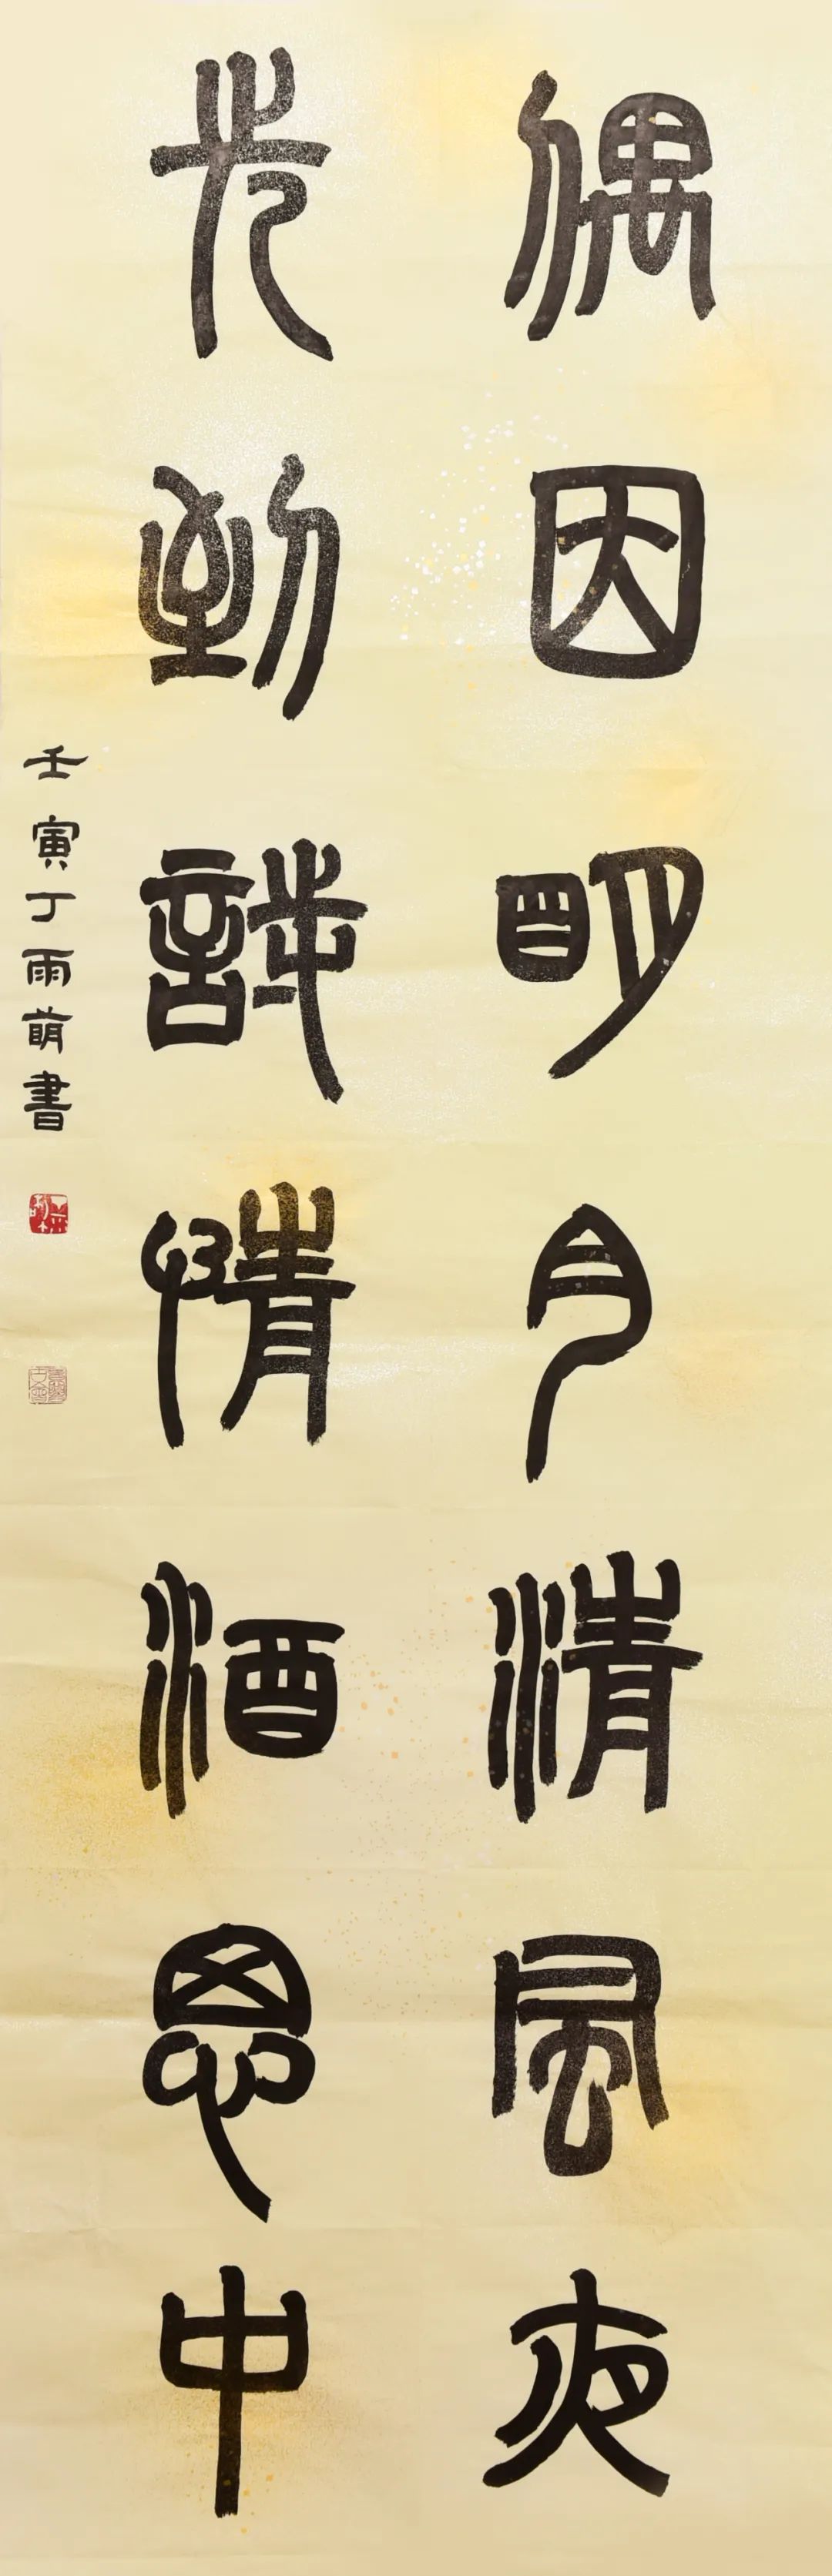 偶因明月清風夜
先到詩情酒思中
壬寅丁雨萌書